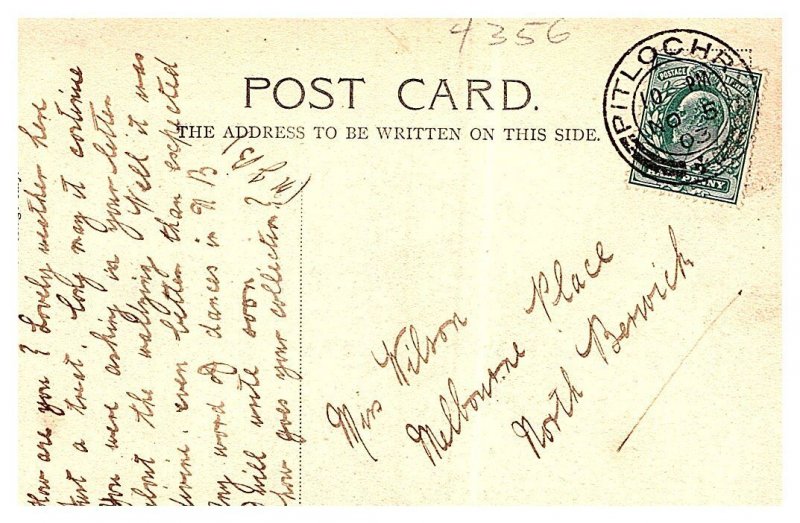 4356
POST CARD.
THE ADDRESS TO BE WRITTEN ON THIS SIDE.
PITLOCHR
POSTAGE
PENNY
How are you? Lovely weather here
Just a treat. Long may it continue
You were asking in your letter
about the walzing. Well it was
divine. even better than expected
Any word of dances in N B
I will write soon.
how goes your collection?
Miss Wilson
Melbourne Place
North Berwick